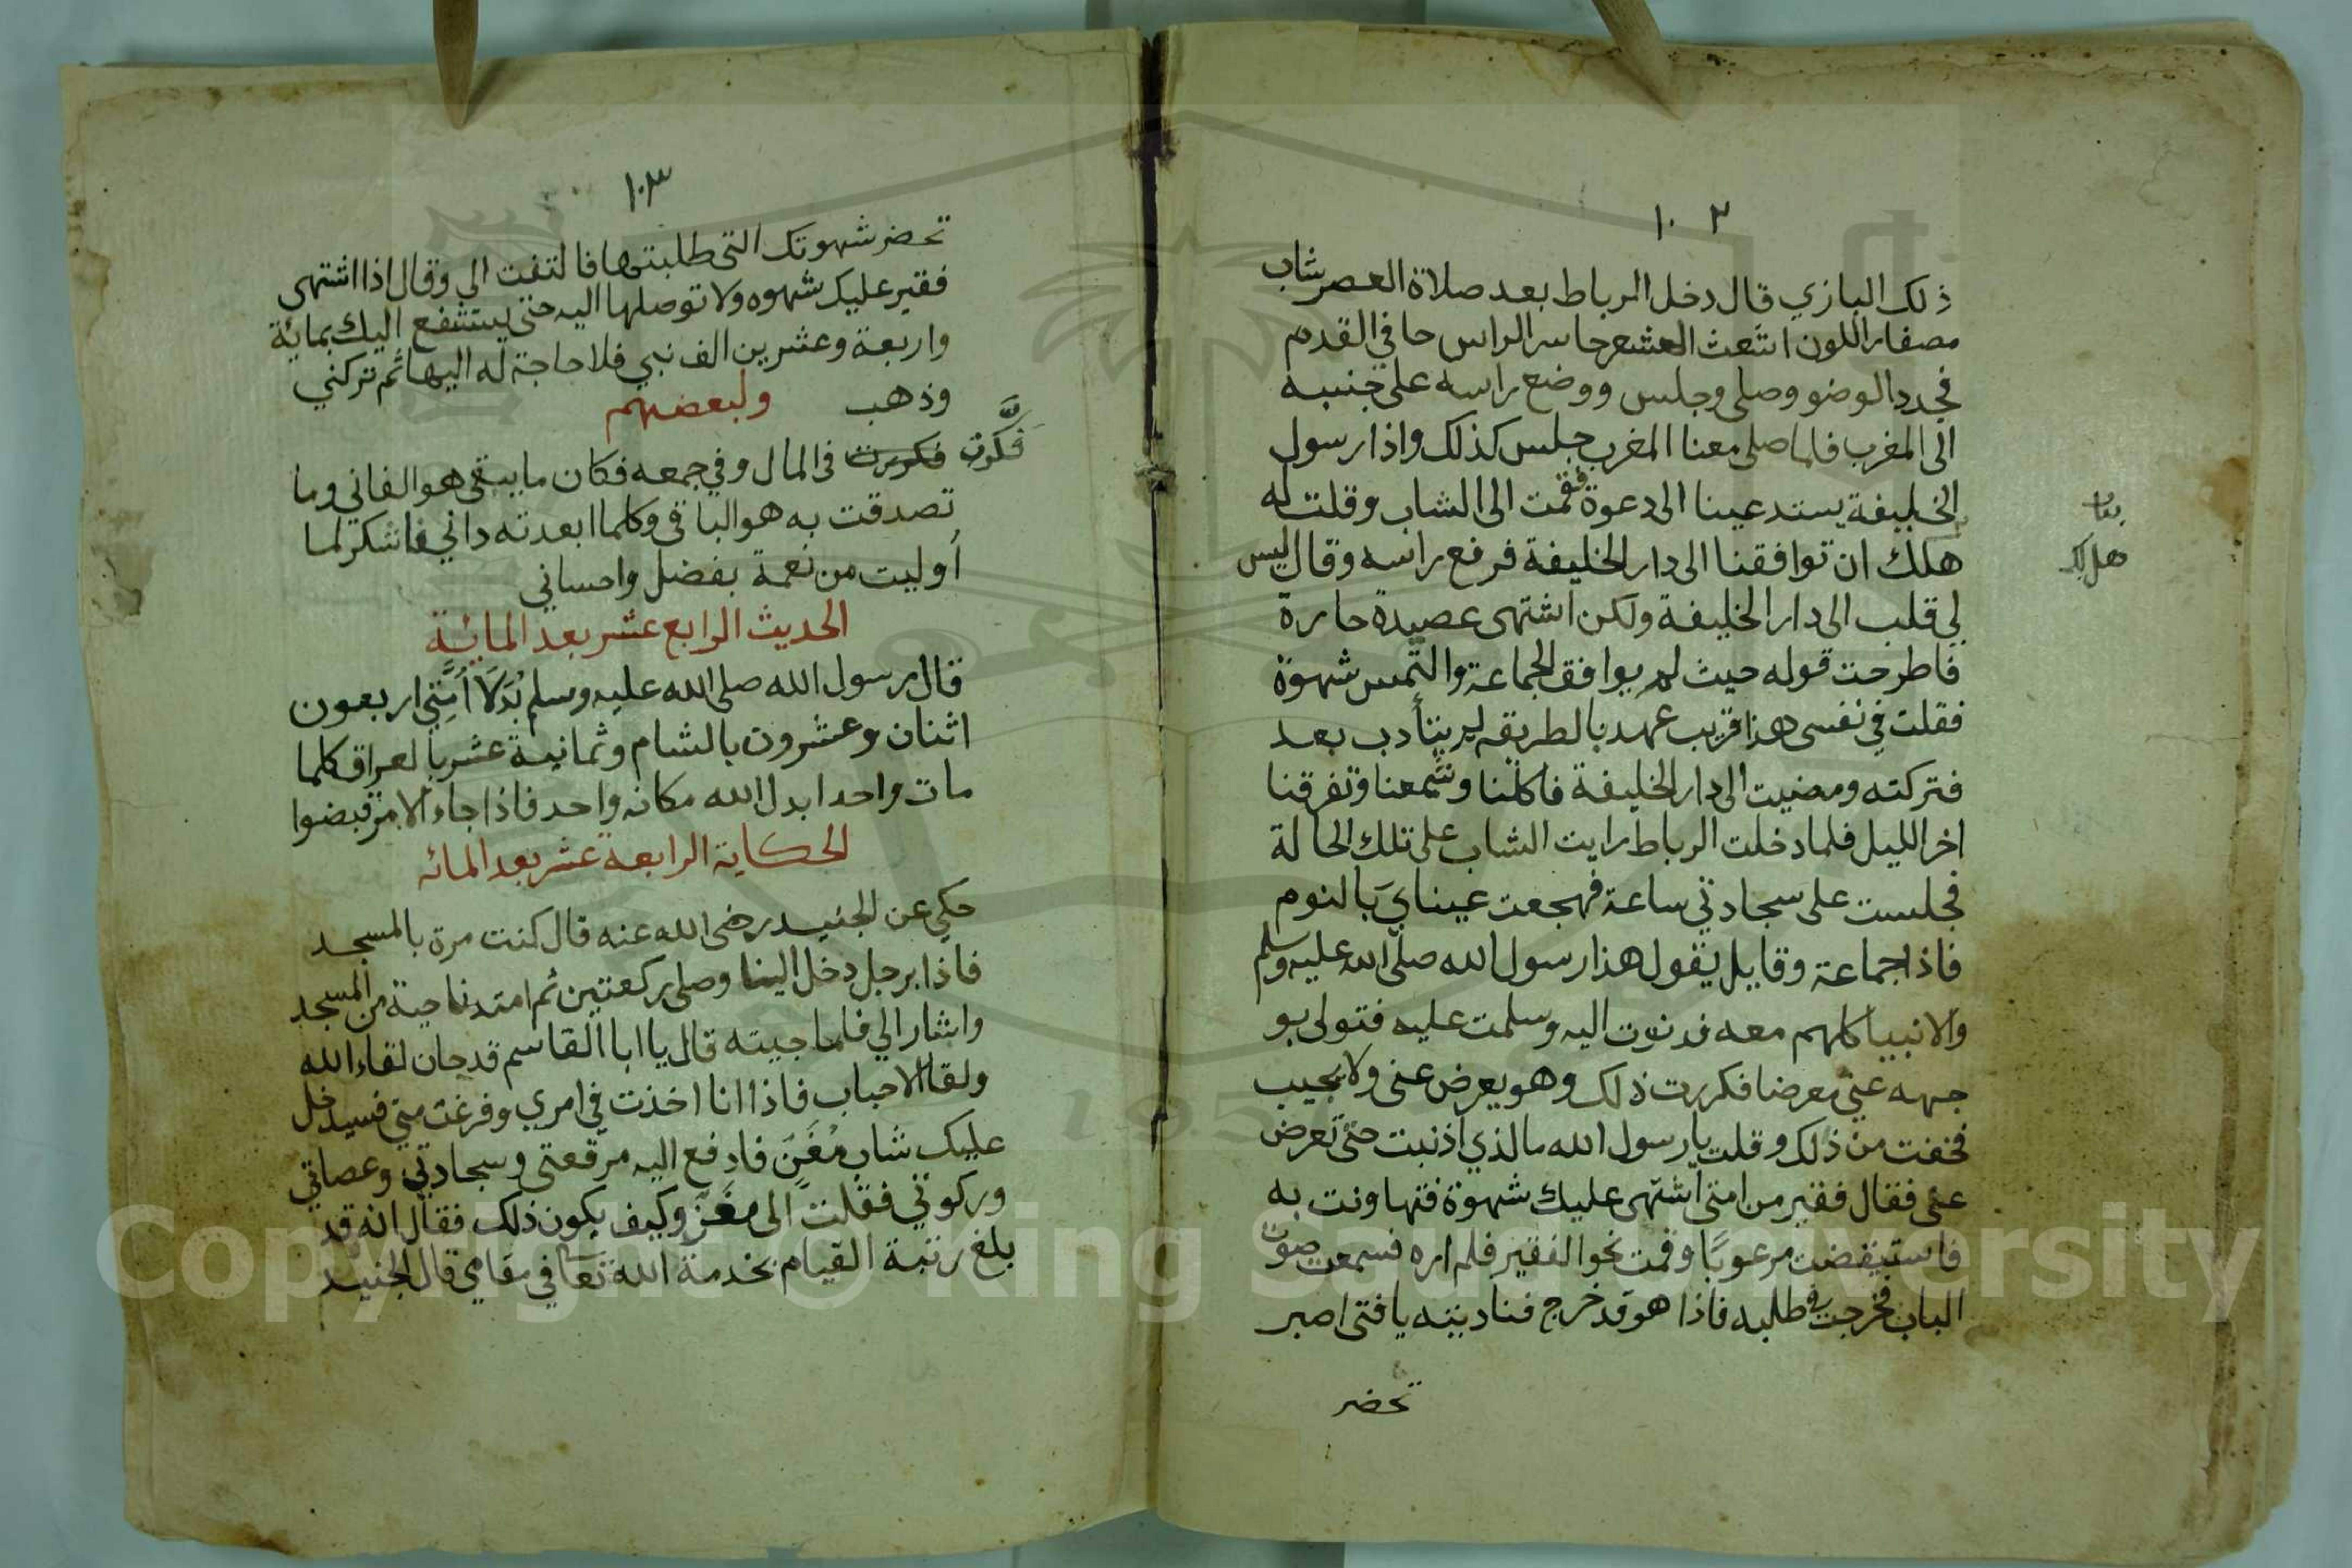 ١٠٢
ذلك البازي قال دخل الرباط بعد صلاة العصر شاب
مصفار اللون اشعث الشعر حاسر الراس حافي القدم
فجدد الوضو وصلى وجلس ووضع راسه على جنبه
الى المغرب فلما صلى معنا المغرب جلس كذلك واذا رسول
الخليفة يستدعينا الى دعوة فقمت الى الشاب وقلت له
هلك ان توافقنا الى دار الخليفة فرفع راسه وقال ليس
هل لك
لي قلب الى دار الخليفة ولكن اشتهى عصيدة حارة
فاطرحت قوله حيث لم يوافق الجماعة والتمس شهوة
فقلت في نفسى هذا قريب عهد بالطريقه لم يتأدب بعد
فتركته ومضيت الى دار الخليفة فاكلنا وسمعنا وتفرقنا
اخر الليل فلما دخلت الرباط رايت الشاب على تلك الحالة
فجلست على سجادتي ساعة فهجعت عيناي بالنوم
فاذا جماعة وقايل يقول هذا رسول الله صلى الله عليه وسلم
والانبيا كلهم معه فدنوت اليه وسلمت عليه فتولى بو
جهه عني معرضا فكررت ذلك وهو يعرض عنى ولا يجيب
فخفت من ذلك وقلت يا رسول الله ما الذي اذنبت حتى تعرض
عنى فقال فقير من امتى اشتهى عليك شهوة فتهاونت به
فاستيقضت مرعوبًا وقمت نحو الفقير فلم اره فسمعت صوت
الباب فخرجت في طلبه فاذا هو قد خرج فناديته يا فتى اصبر
تحضر
١٠٣
تحضر شهوتك التى طلبتها فالتفت الي وقال اذا اشتهى
فقير عليك شهوه ولا توصلها اليه حتى يستشفع اليك بماية
واربعة وعشرين الف نبي فلا حاجة له اليها ثم تركني
وذهب ولبعضهم
فكرت فكرت فى المال وفي جمعه فكان ما يبقى هو الفاني وما
تصدقت به هو الباقى وكلما ابعدته داني فاشكر لما
أوليت من نعمة بفضل واحساني
الحديث الرابع عشر بعد المائة
قال رسول الله صلى الله عليه وسلم بُدَلَا أمَّتي اربعون
اثنان وعشرون بالشام وثمانية عشر بالعراق كلما
مات واحد ابدل الله مكانه واحد فاذا جاء الامر قبضوا
الحكاية الرابعة عشر بعد المائه
حكي عن الجنيد رضى الله عنه قال كنت مرة بالمسجد
فاذا برجل دخل الينا وصلى ركعتين ثم امتد ناحية من المسجد
واشار الي فلما جيته قال يا ابا القاسم قد حان لقاء الله
ولقا الاحباب فاذا انا اخذت في امري وفرغت مني فسيدخل
عليك شاب مُغَنٍ فادفع اليه مرقعتى وسجادتي وعصاتي
وركوتي فقلت الى مغنٍ وكيف يكون ذلك فقال انه قد
بلغ رتبة القيام بخدمة الله تعا في مقامي قال الجنيد
Copyright © King Saud University
1957